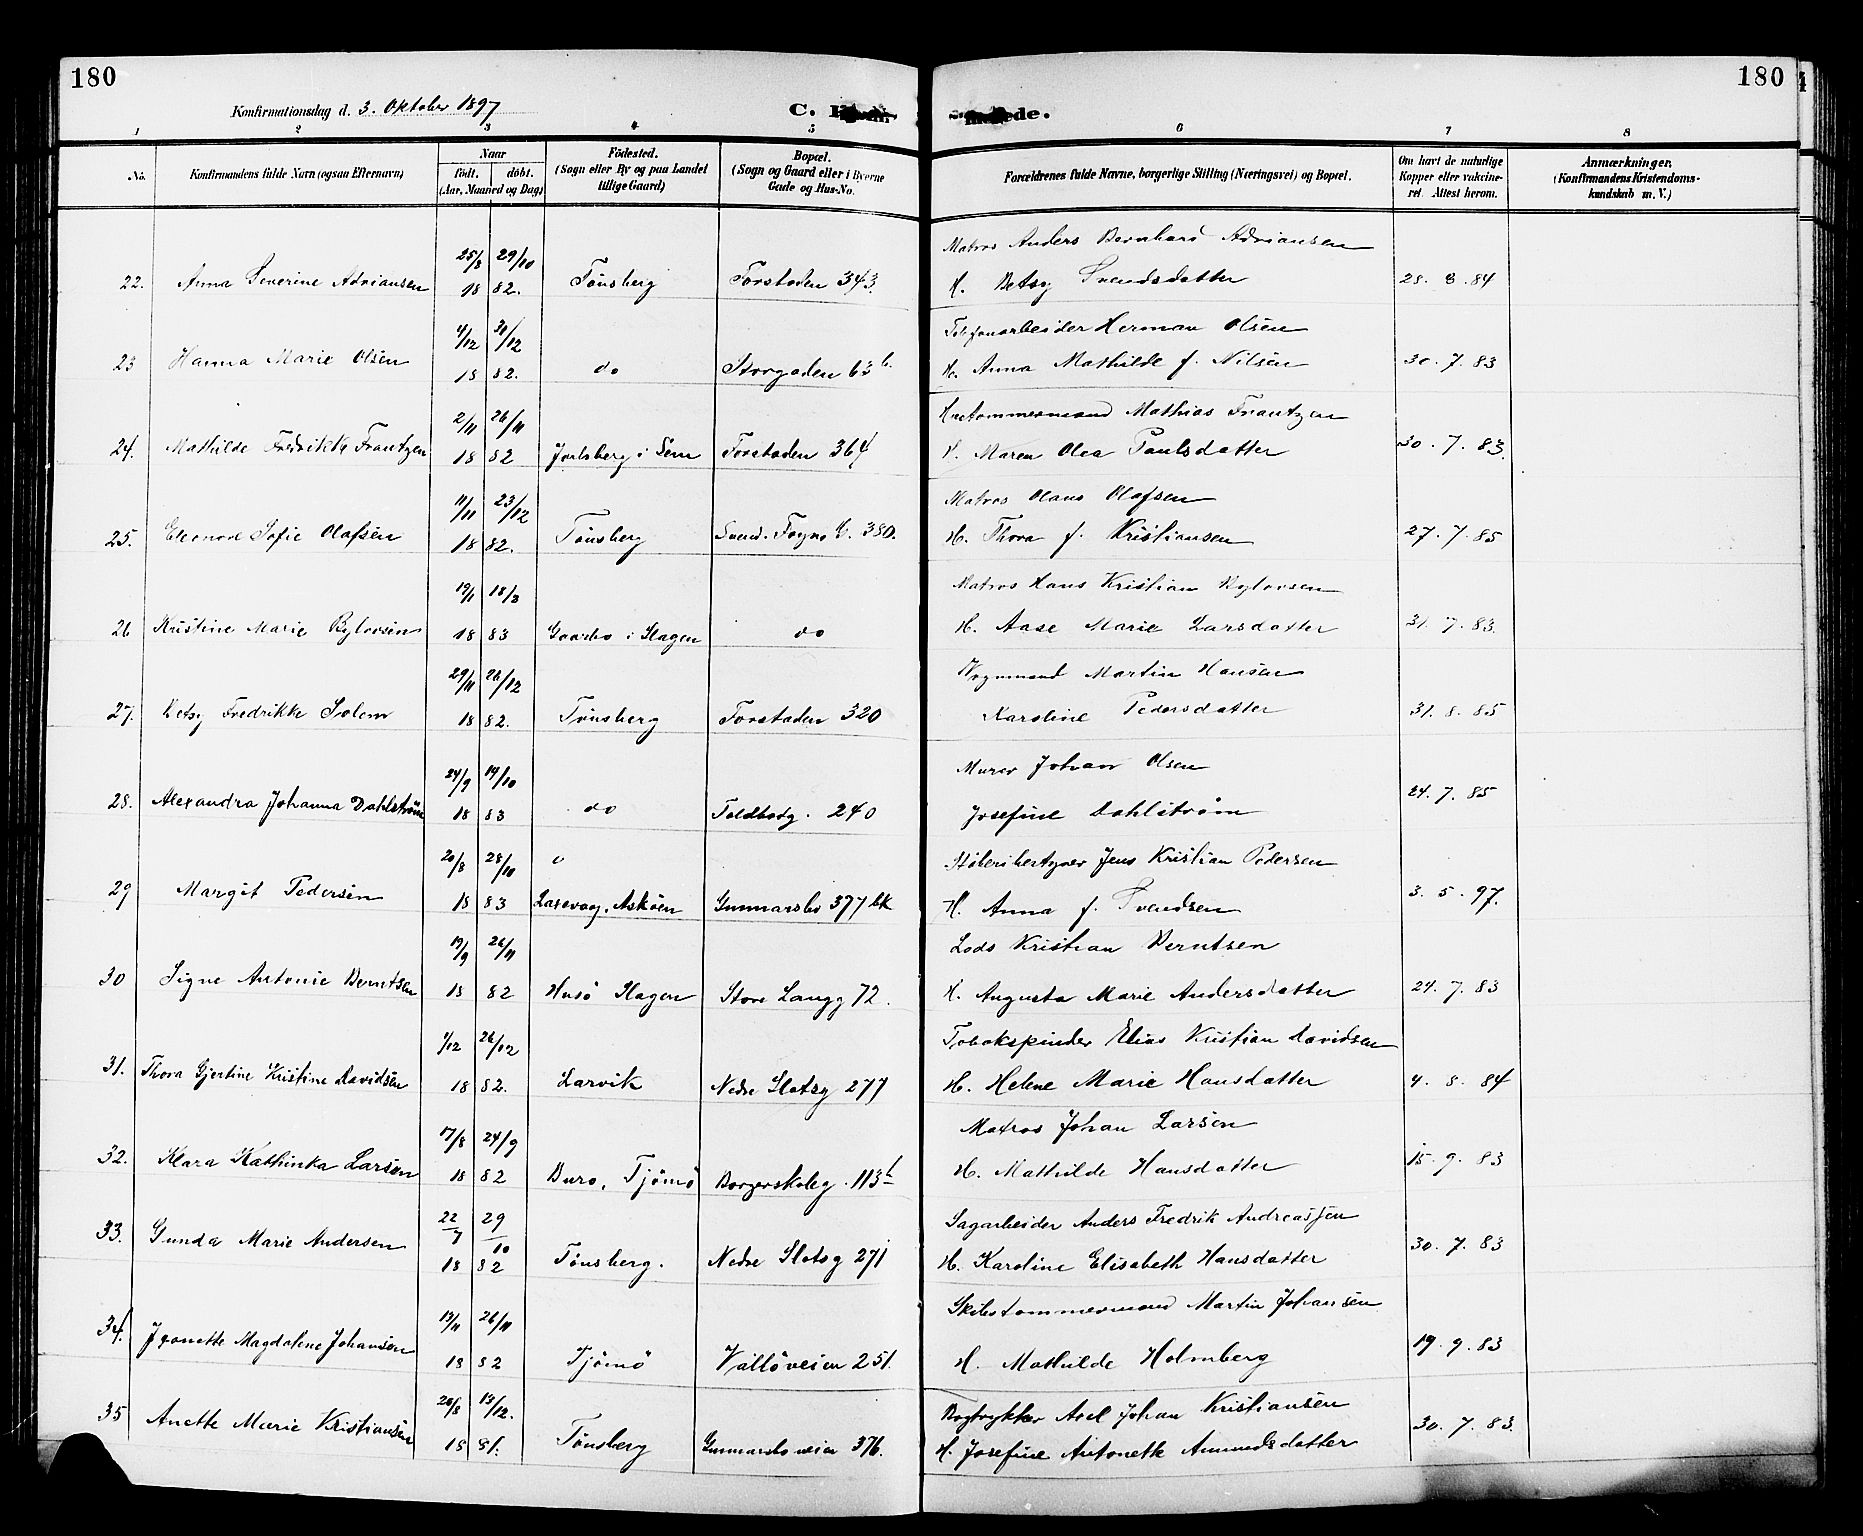 180
180
Konfirmationsdag d. 3. Oktober 1897
C. K
de.
1 2 3 4 5 6 7 8
No.
Konfirmandens fulde Navn (ogsaa Efternavn)
Naar
födt. döbt.
(Aar, Maaned og Dag)
Födested.
(Sogn eller By og paa Landet
tillige Gaard)
Bopæl.
(Sogn og Gaard eller i Byerne
Gade og Hus-No.
Forældrenes fulde Navne, borgerlige Stilling (Næringsvei) og Bopæl.
Om havt de naturlige
Kopper eller vaccine-
ret. Attest herom.
Anmærkninger.
(Konfirmandens Kristendoms-
kundskab m. V.)
25/8 29/10 Matros Anders Bernhard Adriansen
22. Anna Severine Adriansen 18 82. Tönsberg Forstaden 343. H. Betsy Svendsdatter 28. 8. 84
4/12 31/12 Telefonarbeider Herman Olsen
23 Hanna Marie Olsen 18 82. do Storgaden 63 b. H. Anna Mathilde f. Nilsen 30. 7. 83
2/11 26/11 Hustømmermand Mathias Frantzen
24. Mathilde Fredrikke Frantzen 18 82 Jarlsberg i Sem Forstaden 364 H. Maren Olea Paulsdatter 30. 7. 83.
11/11 23/12 Matros Olaus Olafsen
25. Eleonore Sofie Olafsen 18 82. Tønsberg Svend. Foyns G. 380. H. Thora f. Kristiansen 27. 7. 85
19/1 18/3 Matros Hans Kristian
26 Kristine Marie 18 83 Gaarbo i Slagen do H. Aase Marie Larsdatter 31. 7. 83.
29/11 26/12 Vognmand Martin Hansen
27. Betsy Fredrikke Solem 18 82. Tønsberg Forstaden 320 Karoline Pedersdatter 31. 8. 85
24/9 14/10 Murer Johan Olsen
28. Alexandra Johanna Dahlström 18 83 do Toldbodg. 240 Josefine Dahlström 24. 7. 85
20/8 28/10 Støberibestyrer Jens Kristian Pedersen
29 Margit Pedersen 18 83 Laxevaag, Askøen Gunnarsbo 377 bk H. Anna f. Svendsen 3. 5. 97.
19/9 26/11 Lods Kristian Berntsen
30 Signe Antonie Berntsen 18 82 Husö Slagen Store Langg 72. H. Augusta Marie Andersdatter 24. 7. 83
1/12 26/12 Tobakspinder Elias Kristian Davidsen
31. Thora Gjertine Kristine Davidsen 18 82. Larvik Nedre Slotsg 277 H. Helene Marie Hansdatter 4. 8. 84
17/8 24/9 Matros Johan Larsen
32. Klara Kathinka Larsen 18 82 Buro, Tjömö Borgerskoleg. 113 b H. Mathilde Hansdatter 15. 9. 83
22/7 29/10 Sagarbeider Anders Fredrik Andreassen
33. Gunda Marie Andersen 18 82 Tønsberg. Nedre Slotsg 271 H. Karoline Elisabeth Hansdatter 30. 7. 83
13/11 26/11 Skibstømmermand Martin Johansen
34. Jeanette Magdalene Johansen 18 82 Tjømø Vallöveien 251. H. Mathilde Holmberg 19. 9. 83
20/8 13/12. Bogtrykker Axel Johan Kristiansen
35 Anette Marie Kristiansen 18 81. Tønsberg Gunnarsbo veien 376. H. Josefine Antonette Amundsdatter 30. 7. 83.